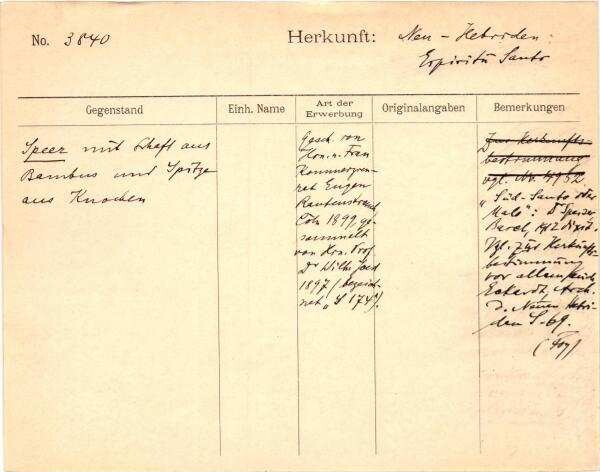 No. 3840
Herkunft: Neu-Hebriden:
Espiritu Santo
Gegenstand
Einh. Name
Art der
Erwerbung
Originalangaben
Bemerkungen
Speer mit Schaft aus
Bambus und Spitze
aus Knochen
Gesch. von
Hrn. u. Frau
Kommerzien-
rat Eugen
Rautenstrauch
Cöln 1899, ge-
sammelt
von Hrn. Prof
Dr Wilh. Joest
1897 (bezeich-
net „S 174“).
Zur Herkunfts-
bestimmung
vgl. Nr. 4952
„Süd-Santo oder
Malo“: Dr Speiser
Basel, 1912 dixit.
Vgl. zur Herkunfts-
bestimmung
vor allem
Eckardt, Arch.
d. Neuen Hebri-
den S. 69.
(Foy)